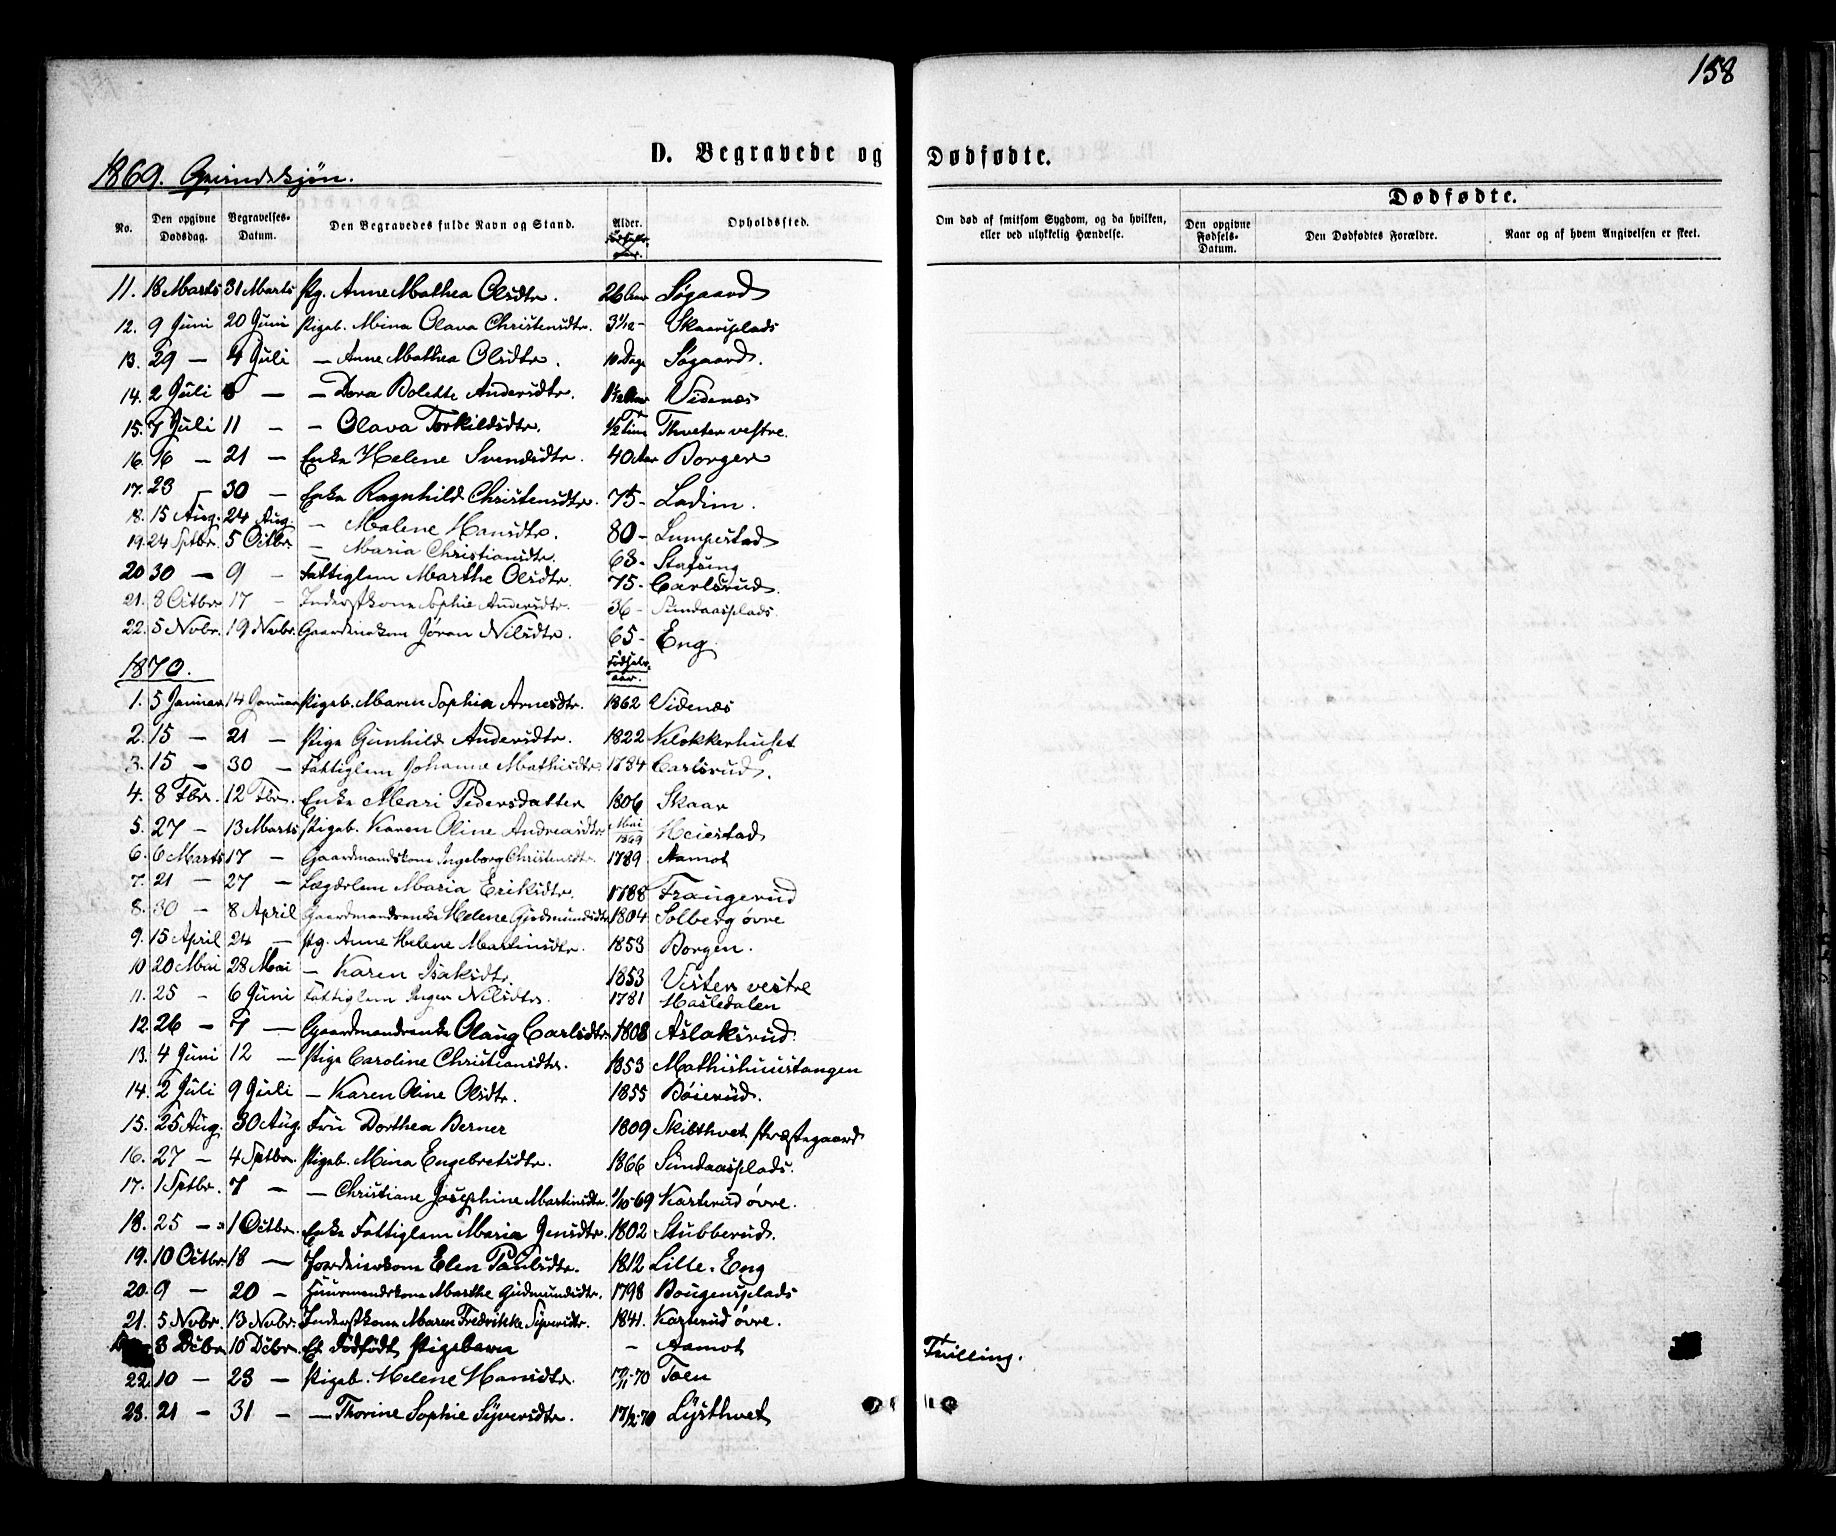 158
D. Begravede og Dødfødte.
1869. Qvindekjøn.
Dødfødte.
No. Den opgivne Dødsdag. Begravelses-Datum. Den Begravedes fulde Navn og Stand. Alder. Opholdssted. Om død af smitsom Sygdom, og da hvilken, eller ved ulykkelig Hændelse. Den opgivne Fødsels-Datum. Den Dødfødtes Forældre. Naar og af hvem Angivelsen er skeet.
11. 18 Marts 31 Marts Pg. Anne Mathea Olsdtr. 26 Aar Søgaard
12. 9 Juni 20 Juni Pigeb. Mina Olava Christensdtr. 3 1/12 - Skaarsplads
13. 29 — 4 Juli — Anne Mathea Olsdtr. 10 Dage Søgaard.
14. 2 Juli — — Dora Bolette Andersdtr. 1 1/2 Aar Videnæs
15. 7 Juli 11 - - Olava Torkildsdtr. 1/2 Time Thveter vestre.
16. 16 — 21 — Enke Helene Svendsdtr. 40 Aar Borgen
17. 23 — 30 — Enke Ragnhild Christensdtr. 75 - Ladim.
18. 15 Aug. 24 Aug. — Malene Hansdtr. 80 - Lumpestad
19. 24 Sptbr. 5 Octbr. — Maria Christiansdtr. 63 -
20 30 — 9 - Fattiglem Marthe Olsdtr. 75 - Carlsrud.
21. 8 Octbr 17 - Inderstkone Sophie Andersdtr. 36 - Sundaasplads.
22. 5 Nvbr. 19 Nvbr. Gaardmakone Jøran Nilsdtr. 65 - Eng.
1870. Fødselsaar.
1. 5 Januar 14 Januar Pigeb. Maren Sophia Arnesdtr. 1862 Videnæs
2. 15 — 21 — Pige Gunhild Andersdtr. 1822 Klokkerhuset
3. 15 - 30 — Fattiglem Johanne Mathisdtr. 1784 Carlsrud.
4. 8 Fbr. 12 Fbr. Enke Mari Pedersdatter 1806 Skaar
5. 27 — 13 Marts Pigeb. Karen Oline Andreasdtr. Mai 1869 Heiestad
6. 6 Marts 17 — Gaardmandskone Ingeborg Christensdtr. 1789 Aamot
7. 21 — 27 — Lægdslem Maria Eriksdtr. 1788 Fraugerud
8. 30 — 8 April Gaardmandsenke Helene Gudmundsdtr 1804 Solberg øvre
9. 15 April 24 — Pg. Anne Helene Martinsdtr. 1853 Borgen.
10 20 Mai 28 Mai — Karen Isaksdtr. 1853 Vister vestre
11. 25 - 6 Juni Fattiglem Inger Nilsdtr. 1781 Hasledalen
12. 26 — 7 — Gaardmandsenke Olaug Carlsdtr. 1808 Aslaksrud.
13. 4 Juni 12 — Pige Caroline Christiansdtr. 1853 Mathishuustangen
14. 2 Juli 9 Juli — Karen Oline Olsdtr. 1855 Bøierud.
15. 25 Aug. 30 Aug. Fru Dorthea Berner 1809 Skibthvet Præstegaard
16. 27 — 4 Sptbr. Pigeb. Mina Engebretsdtr. 1866 Sundaasplads.
17. 1 Sptbr. 7 — — Christiane Josephine Martinsdtr. 1/10-69 Karterud øvre.
18. 25 — 1 Octbr. Enke Fattiglem Maria Jensdtr. 1802 Stubberud.
19. 10 Octbr 18 — Jordeierkone Elen Paulsdtr. 1812 Lille-Eng
20. 9 — 20 — Huusmandskone Marthe Gudmundsdtr. 1798 Bougensplads
21. 5 Nvbr. 13 Nvbr. Inderstkone Maren Fredrikke Syversdtr. 1841. Karterud øvre.
3 Dcbr. 10 Dcbr. Et dødfødt Pigebarn — Aamot Tvilling.
22. 10 — 23 — Pigeb. Helene Hansdtr. Toen
23. 21 — 31 — — Thorine Sophie Syversdtr. 17/2-70 Lysthvet